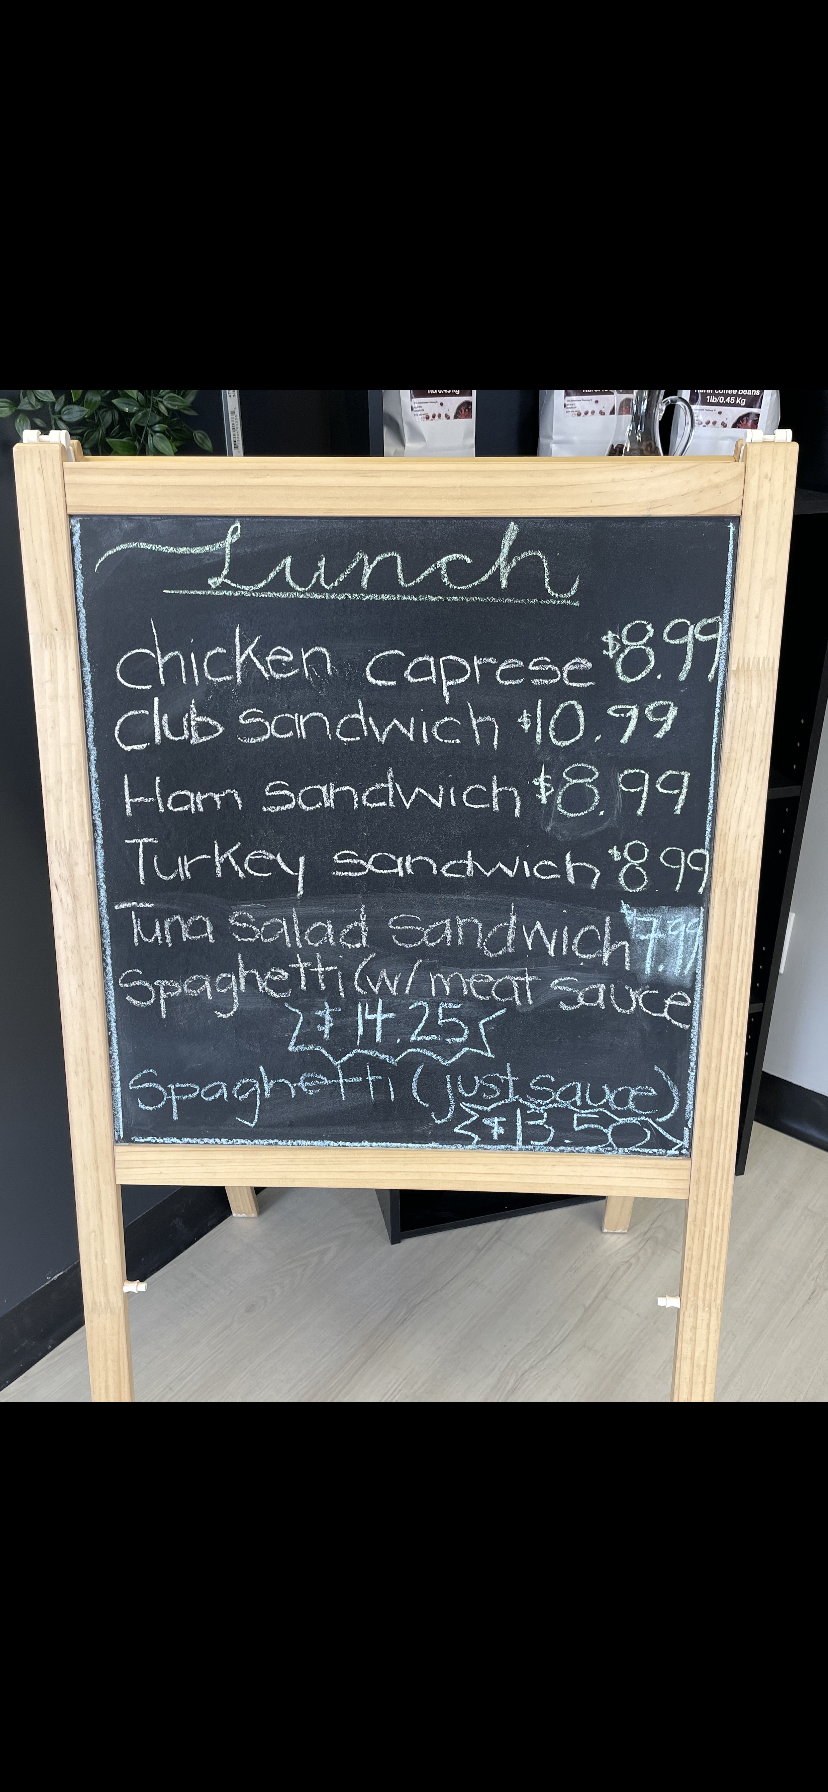 Lunch
chicken caprese $8.99
Club sandwich $10.99
Ham sandwich $8.99
Turkey sandwich $8.99
Tuna salad sandwich 7.99
Spaghetti (w/meat sauce
$14.25
Spaghetti (just sauce)
$13.50
coffee beans
1lb/0.45 Kg